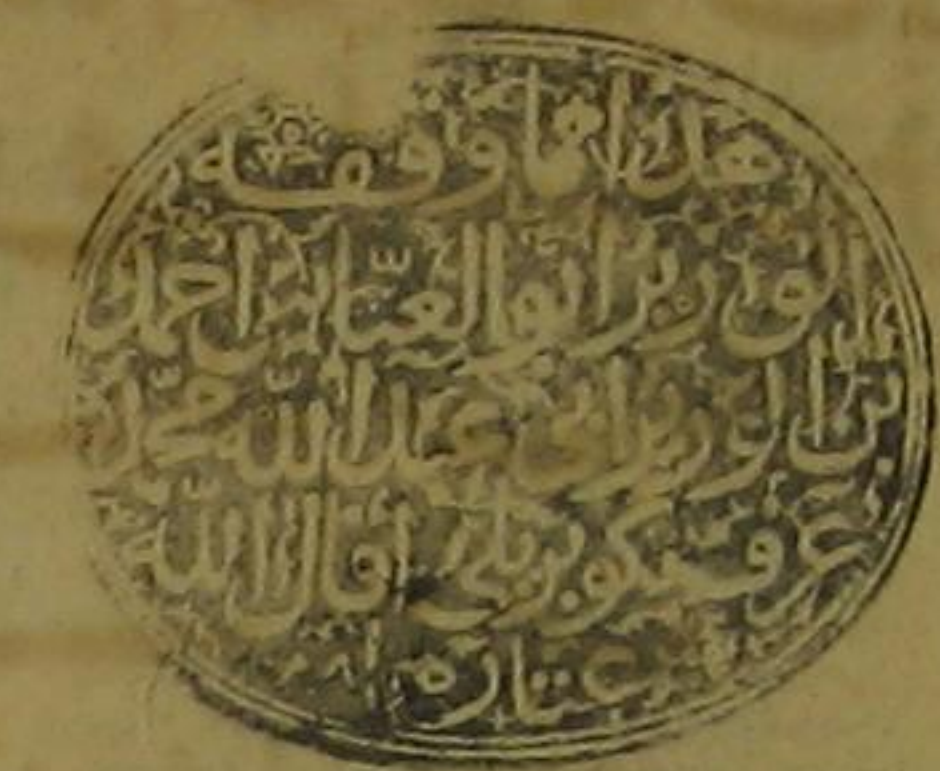 هذا مما وقفه
الوزير ابو العباس احمد
بن الوزير ابي عبد الله محمد
عرف بكوبريلي اقال الله
عثاره